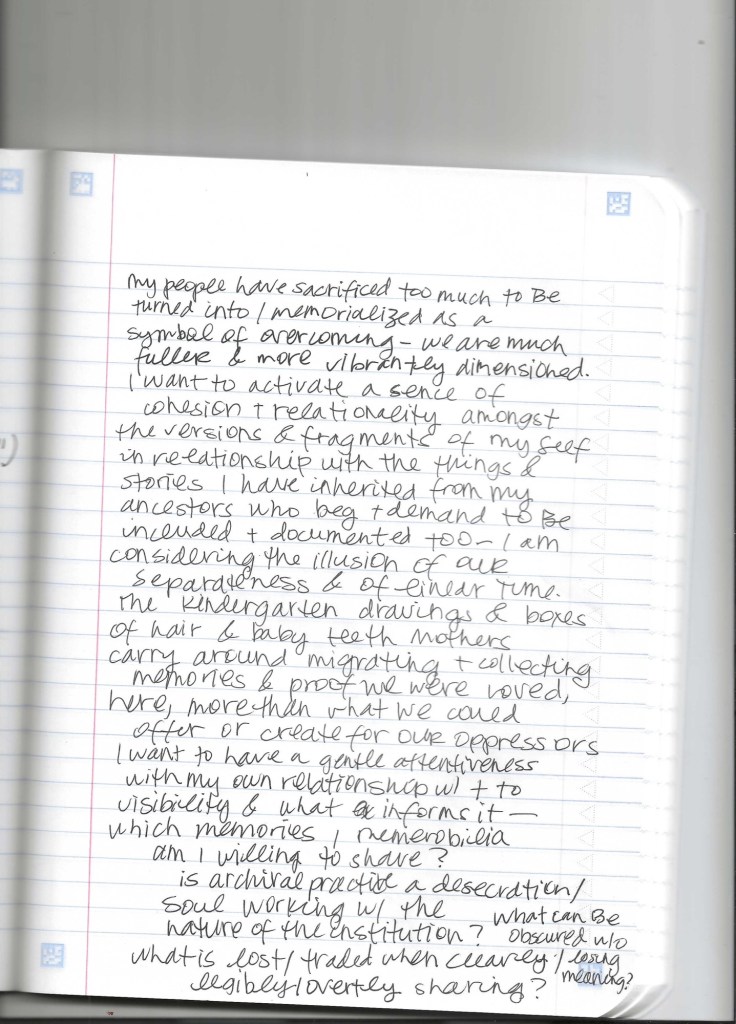 my people have sacrificed too much to Be
turned into / memorialized as a
symbol of overcoming – we are much
fuller & more vibrantly dimensioned.
I want to activate a sence of
cohesion + relationality amongst
the versions & fragments of my self
in relationship with the things &
stories I have inherited from my
ancestors who beg + demand to Be
included + documented too – I am
considering the illusion of our
separateness & of linear time.
The kindergarten drawings & boxes
of hair & baby teeth mothers
carry around migrating + collecting
memories & proof we were loved,
here, more than what we could
offer or create for our oppressors
I want to have a gentle attentiveness
with my own relationship w/ + to
visibility & what informs it –
which memories / memerobilia
am I willing to share?
is archival practice a desecration/
soul working w/ the
nature of the institution?
what is lost/ traded when clearly/
legibly/overtly sharing?
what can Be
obscured w/o
losing
meaning?